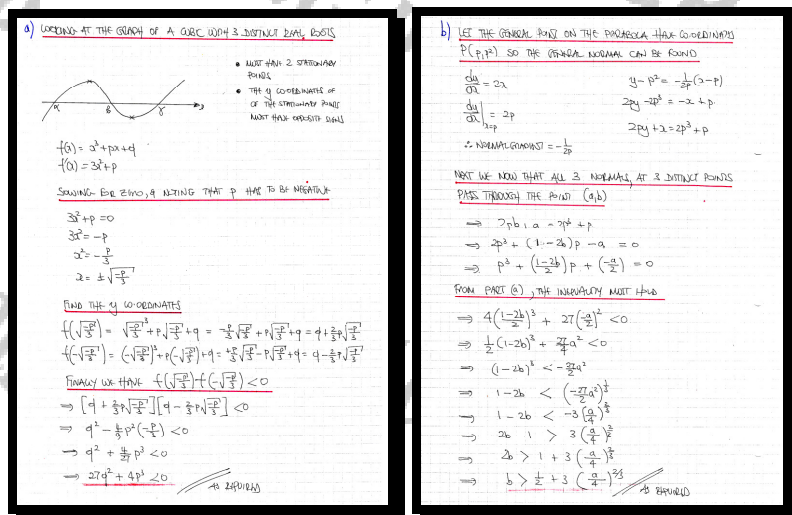 a) LOOKING AT THE GRAPH OF A CUBIC WITH 3 DISTINCT REAL ROOTS
• MUST HAVE 2 STATIONARY
POINTS
• THE y CO-ORDINATES OF
OF THE STATIONARY POINTS
MUST HAVE OPPOSITE SIGNS
α β γ x
f(x) = x³+px+q
f'(x) = 3x²+p
SOLVING FOR ZERO, & NOTING THAT p HAS TO BE NEGATIVE
3x²+p =0
3x² = -p
x² = -p/3
x = ±√(-p/3)
FIND THE y CO-ORDINATES
f(√(-p/3)) = √(-p/3)³ + p√(-p/3) + q = -p/3√(-p/3) + p√(-p/3) + q = q + 2/3p√(-p/3)
f(-√(-p/3)) = (-√(-p/3))³ + p(-√(-p/3)) + q = +p/3√(-p/3) - p√(-p/3) + q = q - 2/3p√(-p/3)
FINALLY WE HAVE f(√(-p/3)) f(-√(-p/3)) < 0
⇒ [q + 2/3p√(-p/3)][q - 2/3p√(-p/3)] < 0
⇒ q² - 4/9p²(-p/3) < 0
⇒ q² + 4/27p³ < 0
⇒ 27q² + 4p³ < 0
AS REQUIRED
b) LET THE GENERAL POINT ON THE PARABOLA HAVE CO-ORDINATES
P(p,p²) SO THE GENERAL NORMAL CAN BE FOUND
dy/dx = 2x
dy/dx|x=p = 2p
∴ NORMAL GRADIENT = -1/2p
y - p² = -1/2p(x-p)
2py - 2p³ = -x + p
2py + x = 2p³ + p
NEXT WE NOW THAT ALL 3 NORMALS, AT 3 DISTINCT POINTS
PASS THROUGH THE POINT (a,b)
⇒ 2pb + a = 2p³ + p
⇒ 2p³ + (1-2b)p - a = 0
⇒ p³ + ((1-2b)/2)p + (-a/2) = 0
FROM PART (a), THE INEQUALITY MUST HOLD
⇒ 4((1-2b)/2)³ + 27(-a/2)² < 0
⇒ 1/2(1-2b)³ + 27/4a² < 0
⇒ (1-2b)³ < -27/2a²
⇒ 1-2b < (-27/2a²)^(1/3)
⇒ 1-2b < -3(a/4)^(2/3)
⇒ 2b 1 > 3(a/4)^(2/3)
⇒ 2b > 1 + 3(a/4)^(2/3)
⇒ b > 1/2 + 3(a/4)^(2/3)
AS REQUIRED